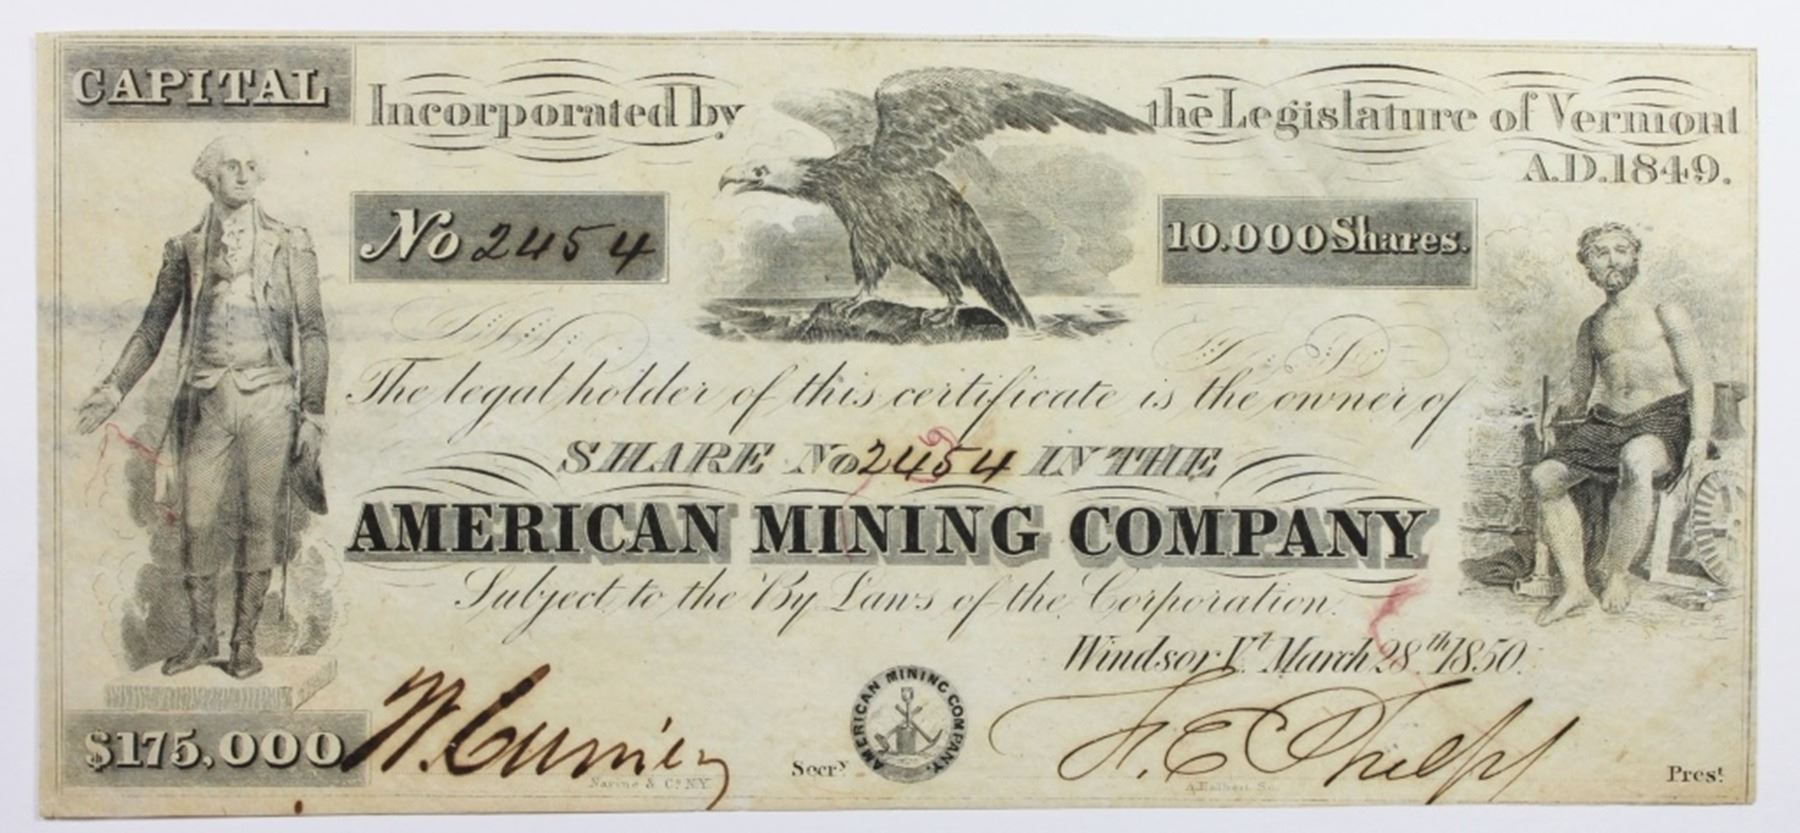 CAPITAL
Incorporated by the Legislature of Vermont
A.D. 1849.
No 2454
10.000 Shares.
The legal holder of this certificate is the owner of
SHARE No 2454 IN THE
AMERICAN MINING COMPANY
Subject to the By Laws of the Corporation.
Windsor Vt March 28th 1850.
$175,000
W. Currier Secry
AMERICAN MINING COMPANY.
F. E. Phelps Prest
Narine & Co N.Y.